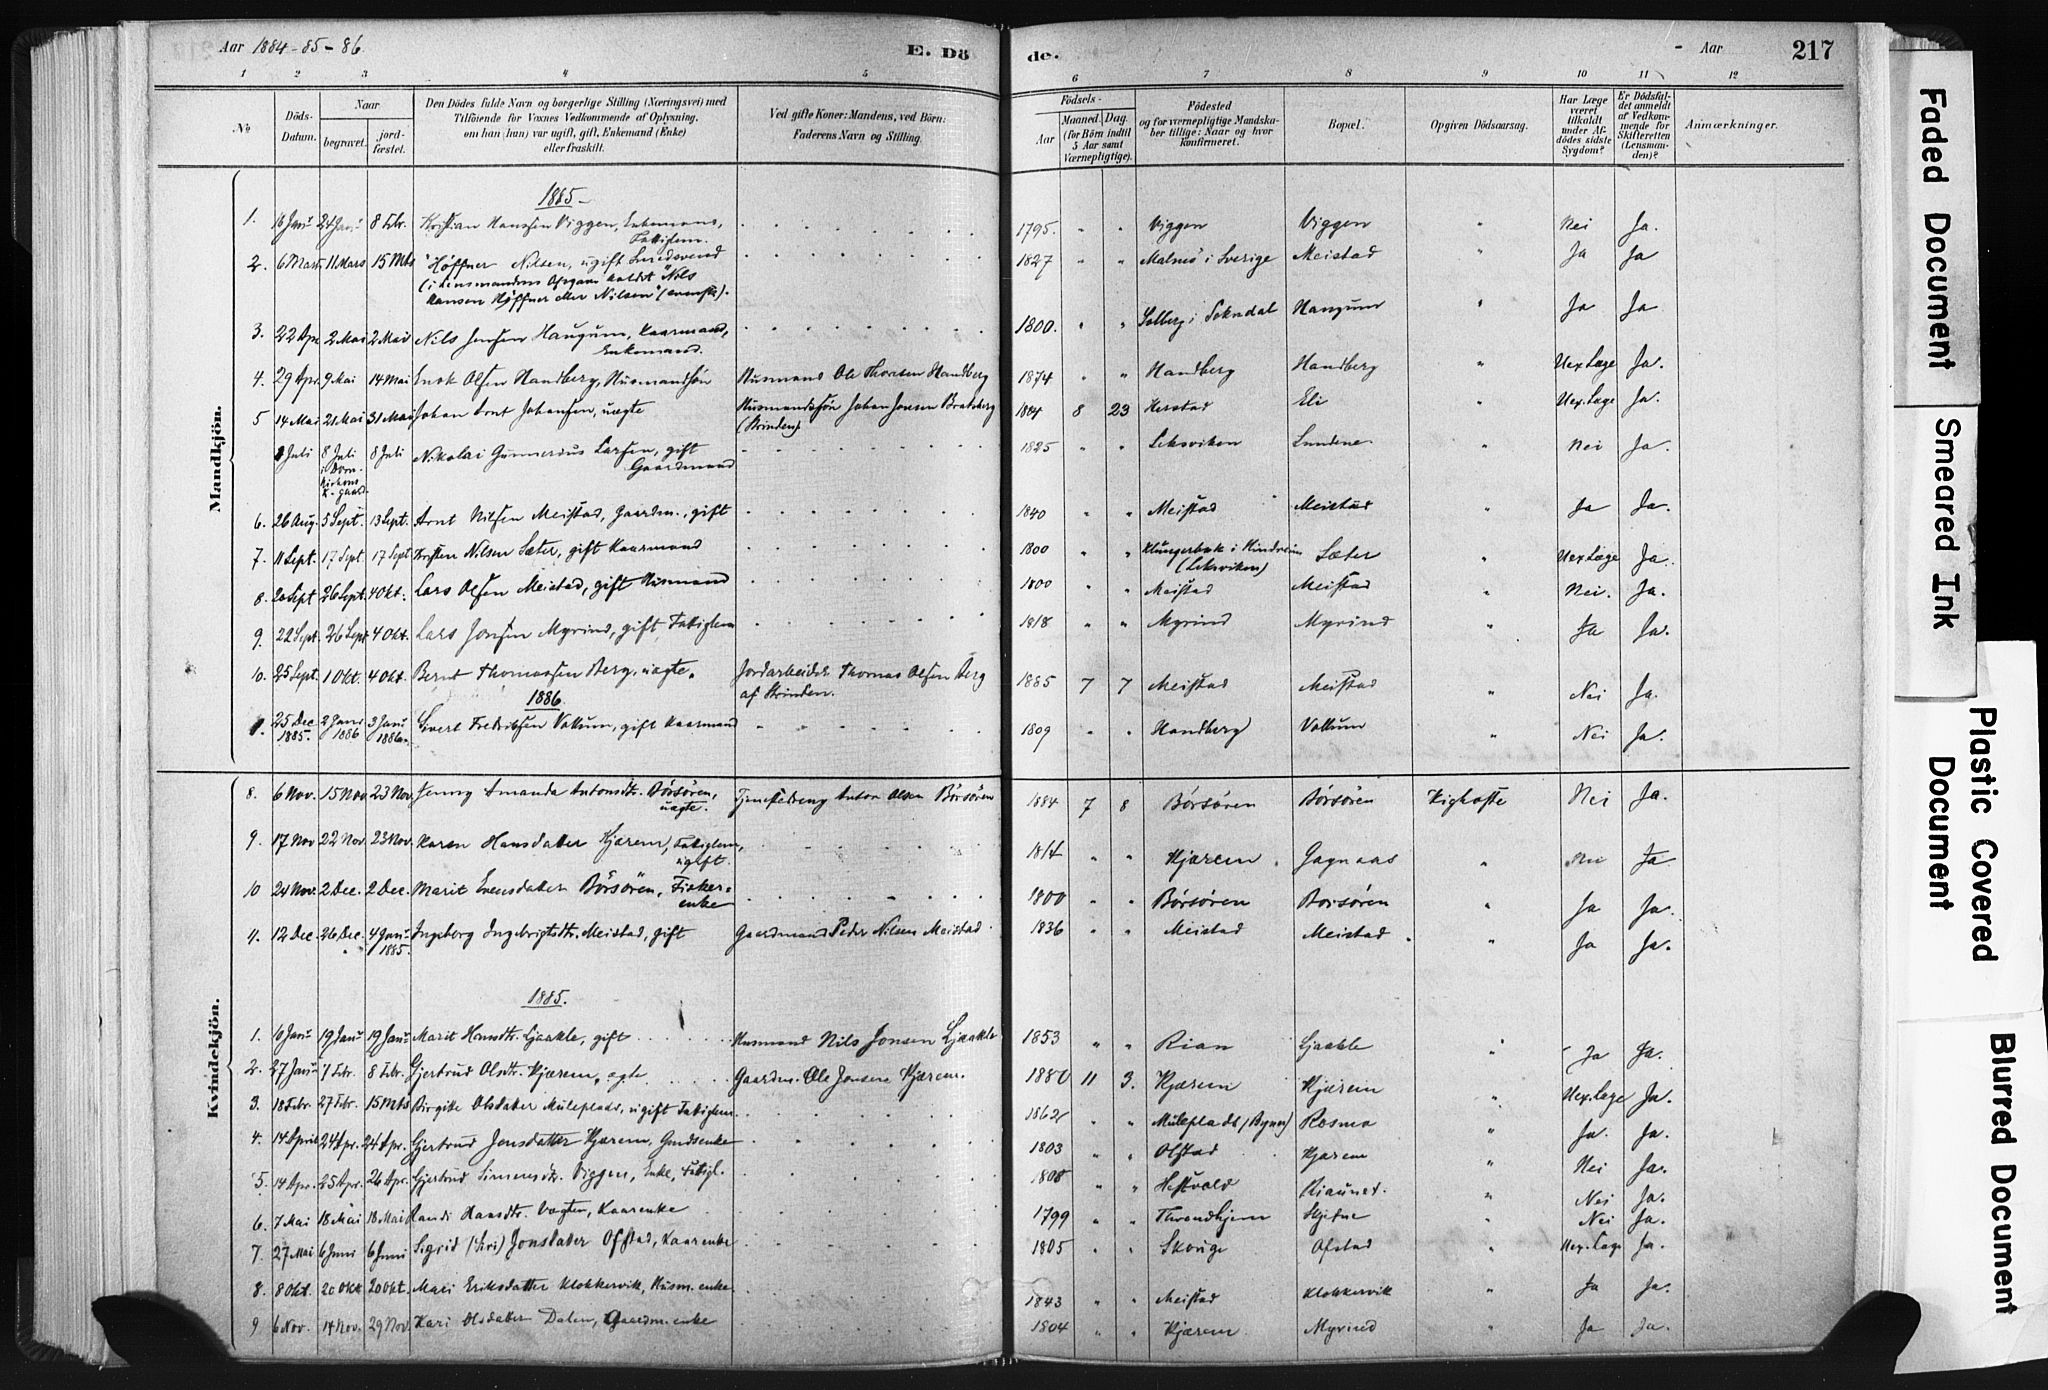 Aar 1884-85-86.
E. Dö
de.
- Aar
217
1 2 3 4 5 6 7 8 9 10 11 12
№
Döds-
Datum.
Naar
begravet.
jord-
fæstet.
Den Dödes fulde Navn og borgerlige Stilling (Næringsvei) med
Tilföiende for Voxnes Vedkommende af Oplysning,
om han (hun) var ugift, gift, Enkemand (Enke)
eller fraskilt.
Ved gifte Koner: Mandens, ved Börn:
Faderens Navn og Stilling.
Födsels-
Aar
Maaned. Dag.
(for Börn indtil
5 Aar samt
Værnepligtige).
Födested
og for værnepligtige Mandska-
ber tillige: Naar og hvor
konfirmeret.
Bopæl.
Opgiven Dödsaarsag.
Har Læge
været
tilkaldt
under Af-
dödes sidste
Sygdom?
Er Dödsfal-
det anmeldt
af Vedkom-
mende for
Skifteretten
(Lensman-
den)?
Anmærkninger.
Mandkjön.
1885
1. 16 Janr 24 Janr 8 Febr. Kristian Hansen Viggen, Enkemand, Fattiglem. 1795. " " Viggen Viggen " Nei Ja.
2. 6 Mars 11 Mars 15 Mts "Höffner Nilsen, ugift Smedsvend 1827 " " Malmö i Sverige Meistad " Ja Ja
(i Lensmandens Opgave kaldt "Nils
Hansen Höffner eller Nilsen" (svensk).
3. 22 Apr 2 Mai 2 Mai Nils Jensen Haugum, Kaarmand, Enkemand. 1800. " " Solberg i Sokndal Haugum " Ja Ja
4. 29 Apr. 9 Mai 14 Mai Enok Olsen Handberg, Husmandsön Husmand Ole Thorsen Handberg 1874 " " Handberg Handberg " Uex. Læge Ja.
5 14 Mai 21 Mai 31 Mai Johan Arnt Johansen, uægte Husmandssön Johan Jonsen Bratsberg (Strinden) 1884 8 23 Herstad Eli Uex. Læge Ja.
1 Juli 8 Juli 8 Juli Nikolai Gunnerius Larsen, gift Gaardmand 1825 " " Leksviken Lundene " Nei Ja.
6. 26 Aug. 5 Sept. 13 Sept. Arnt Nilsen Meistad, Gaardm., gift 1840 " " Meistad Meistad " Ja Ja.
7. 11 Sept. 17 Sept. 17 Sept Kristen Nilsen Sæter, gift Kaarmand 1800 " " Klungerbak i Hindreim (Leksviken) Sæter " Uex Læge Ja.
8. 20 Sept 26 Sept. 4 Okt. Lars Olsen Meistad, gift Husmand 1800 " " Meistad Meistad " Nei. Ja.
9. 22 Sept. 26 Sept 4 Okt. Lars Jonsen Myrind, gift Fattiglem 1818 " " Myrind Myrind " Ja Ja.
10. 25 Sept. 1 Okt. 4 Okt. Bernt Thomassen Berg, uægte. Jordarbeider Thomas Olsen Berg af Strinden. 1885 7 7 Meistad Meistad " Nei Ja.
1886
1. 25 Dec 1885. 2 Janr 1886 3 Janr 1886. Sivert Fredriksen Vollum, gift Kaarmand 1809 " " Handberg Vollum " Nei Ja.
Kvindekjön.
8. 6 Nov. 15 Nov 23 Nov. Jenny Amanda Antonsdtr. Börsören, uægte. Tjenestedreng Anton Olsen Börsören 1884 7 8 Börsören Börsören Kighoste Nei Ja.
9. 17 Nov 22 Nov. 23 Nov. Karen Hansdatter Kjærem, Fattiglem, ugift. 1814 " " Kjærem Gagnaas " Nei Ja
10 24 Nov. 2 Dec. 2 Dec. Marit Evensdatter Börsören, Fisker-enke 1800 " " Börsören Börsören " Ja Ja.
11. 12 Dec. 26 Dec. 4 Janr 1885. Ingeborg Ingebrigtsdtr. Meistad, gift Gaardmand Peder Nilsen Meistad 1836 " " Meistad Meistad " Ja Ja.
1885.
1. 10 Janr 19 Janr 19 Janr Marit Hansdtr. Ljaakle, gift Husmand Nils Jonsen Ljaakle 1853 " " Rian Ljaakle " Ja Ja.
2. 27 Janr 7 Febr. 8 Febr. Gjertrud Olsdtr. Kjærem, ægte Gaardm. Ole Jonsen Kjærem. 1880 11 3. Kjærem Kjærem " Uex. Læge Ja.
3. 18 Febr. 27 Febr. 15 Mts Birgitte Olsdatter Muleplads, ugift Fattiglem. 1862 " " Muleplads (Bynes) Rosmo " Ja. Ja.
4. 14 April 24 Apr. 24 Apr. Gjertrud Jonsdatter Kjærem, Gmdsenke 1803 " " Ofstad Kjærem " Nei Ja.
5. 14 Apr. 25 Apr. 26 Apr. Gjertrud Simensdtr. Viggen, Enke, Fattigl. 1808 " " Hestvold Riaunet. " Nei Ja.
6. 7 Mai 18 Mai 18 Mai Randi Hansdtr. Vægten, Kaarenke 1799 " " Throndhjem Skjefne " Nei Ja.
7. 27 Mai 6 Juni 6 Juni Sigrid (Siri) Jonsdatter Ofstad, Kaarenke 1805 " " Skouge Ofstad " Uex. Læge Ja.
8. 8 Okt. 20 Okt 20 Okt. Mari Eriksdatter Klokkervik, Husm.enke 1843 " " Meistad Klokkervik " Ja Ja.
9 6 Nov. 14 Nov. 29 Nov. Kari Olsdatter Dalen, Gaardm.enke 1804 " " Kjærem Myrind " Ja Ja.
Faded Document
Smeared Ink
Plastic Covered
Document
Blurred Document